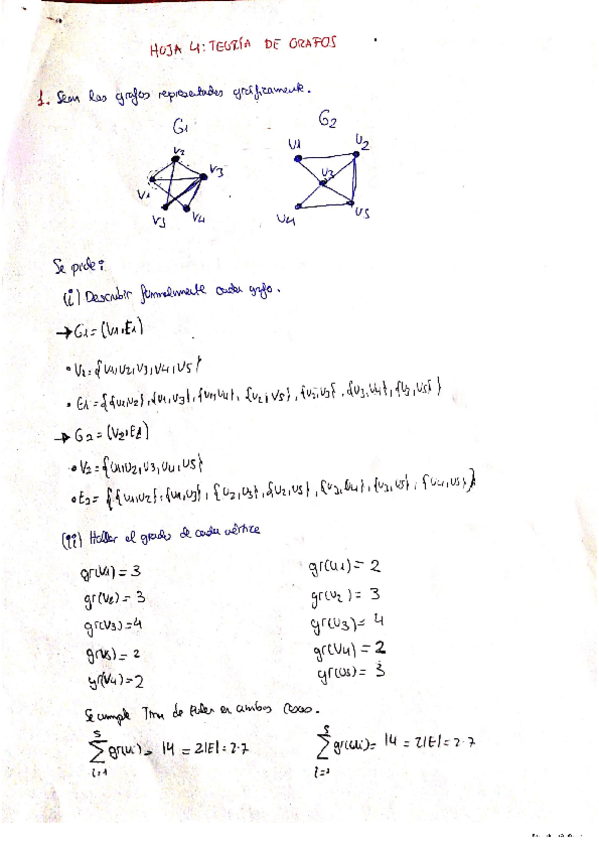 HOJA 4: TEORÍA DE GRAFOS
1. Sean los grafos representados gráficamente.
G1
G2
V2
V3
V1
V3
V4
U1
U2
U3
U4
U5
Se pide:
(i) Describir formalmente cada grafo.
→ G1 = (V1, E1)
• V1 = {v1, v2, v3, v4, v5}
• E1 = {{v1,v2}, {v1,v3}, {v1,v4}, {v2,v5}, {v2,v3}, {v3,v4}, {v3,v5}}
→ G2 = (V2, E2)
• V2 = {u1, u2, u3, u4, u5}
• E2 = {{u1,u2}, {u1,u3}, {u2,u3}, {u2,u5}, {u3,u4}, {u3,u5}, {u4,u5}}
(ii) Hallar el grado de cada vértice
gr(v1) = 3
gr(u1) = 2
gr(v2) = 3
gr(u2) = 3
gr(v3) = 4
gr(u3) = 4
gr(v5) = 2
gr(u4) = 2
gr(v4) = 2
gr(u5) = 3
Se cumple Tma de Euler en ambos casos.
5
∑ gr(vi) = 14 = 2|E| = 2·7
i=1
5
∑ gr(ui) = 14 = 2|E| = 2·7
i=1